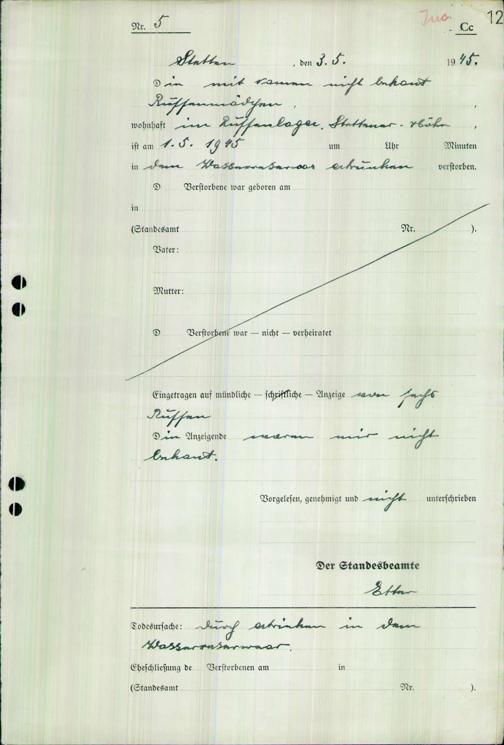 Nr. 5
Cc
12
Stetten, den 3.5. 1945.
Die mit namen nicht bekant
Russenmädchen,
wohnhaft im Russenlager, Stettener-Höhe,
ist am 1.5.1945 um Uhr Minuten
in dem Wasserreserwoar ertrunken verstorben.
D Verstorbene war geboren am
in
(Standesamt Nr. ).
Vater:
Mutter:
D Verstorbene war — nicht — verheiratet
Eingetragen auf mündliche — schriftliche — Anzeige von sechs
Russen
Die Anzeigende waren mir nicht
bekant.
Vorgelesen, genehmigt und nicht unterschrieben
Der Standesbeamte
Etter
Todesursache: durch ertrinken in dem
Wasserreserwoar.
Eheschließung de Verstorbenen am in
(Standesamt Nr. ).